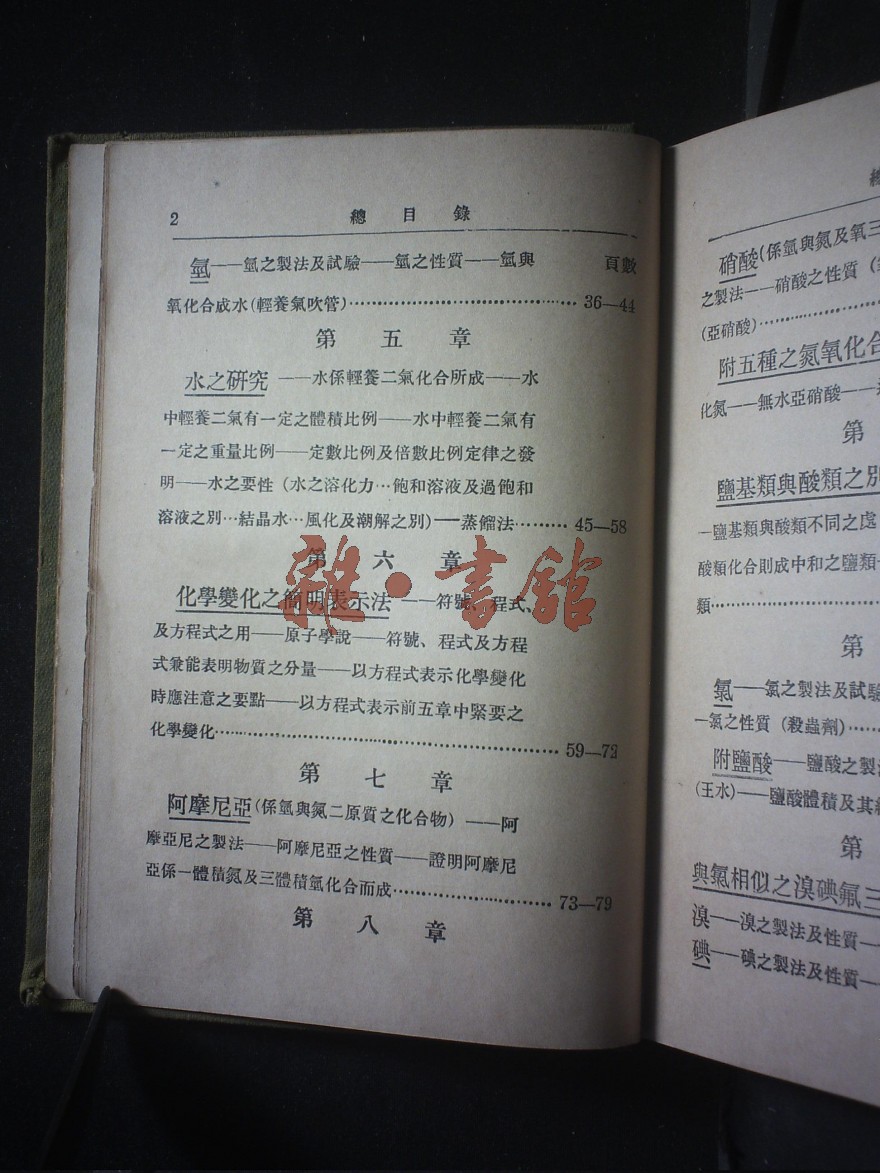 2 總目錄
氫——氫之製法及試驗——氫之性質——氫與 頁數
氧化合成水(輕養氣吹管)……………………………… 36—44
第五章
水之研究——水係輕養二氣化合所成——水
中輕養二氣有一定之體積比例——水中輕養二氣有
一定之重量比例——定數比例及倍數比例定律之發
明——水之要性(水之溶化力…飽和溶液及過飽和
溶液之別…結晶水…風化及潮解之別)——蒸餾法……… 45—58
第六章
化學變化之簡明表示法——符號、程式、
及方程式之用——原子學說——符號、程式及方程
式兼能表明物質之分量——以方程式表示化學變化
時應注意之要點——以方程式表示前五章中緊要之
化學變化…………………………………………… 59—72
第七章
阿摩尼亞(係氫與氮二原質之化合物)——阿
摩亞尼之製法——阿摩尼亞之性質——證明阿摩尼
亞係一體積氮及三體積氫化合而成…………………… 73—79
第八章
總
硝酸(係氫與氮及氧三
之製法——硝酸之性質(
(亞硝酸)………………
附五種之氮氧化合
化氮——無水亞硝酸——
第
鹽基類與酸類之別
—鹽基類與酸類不同之處
酸類化合則成中和之鹽類—
類……………………
第
氯——氯之製法及試驗
—氯之性質(殺蟲劑)……
附鹽酸——鹽酸之製
(王水)——鹽酸體積及其
第
與氯相似之溴碘氟三
溴——溴之製法及性質—
碘——碘之製法及性質—
雜·書館